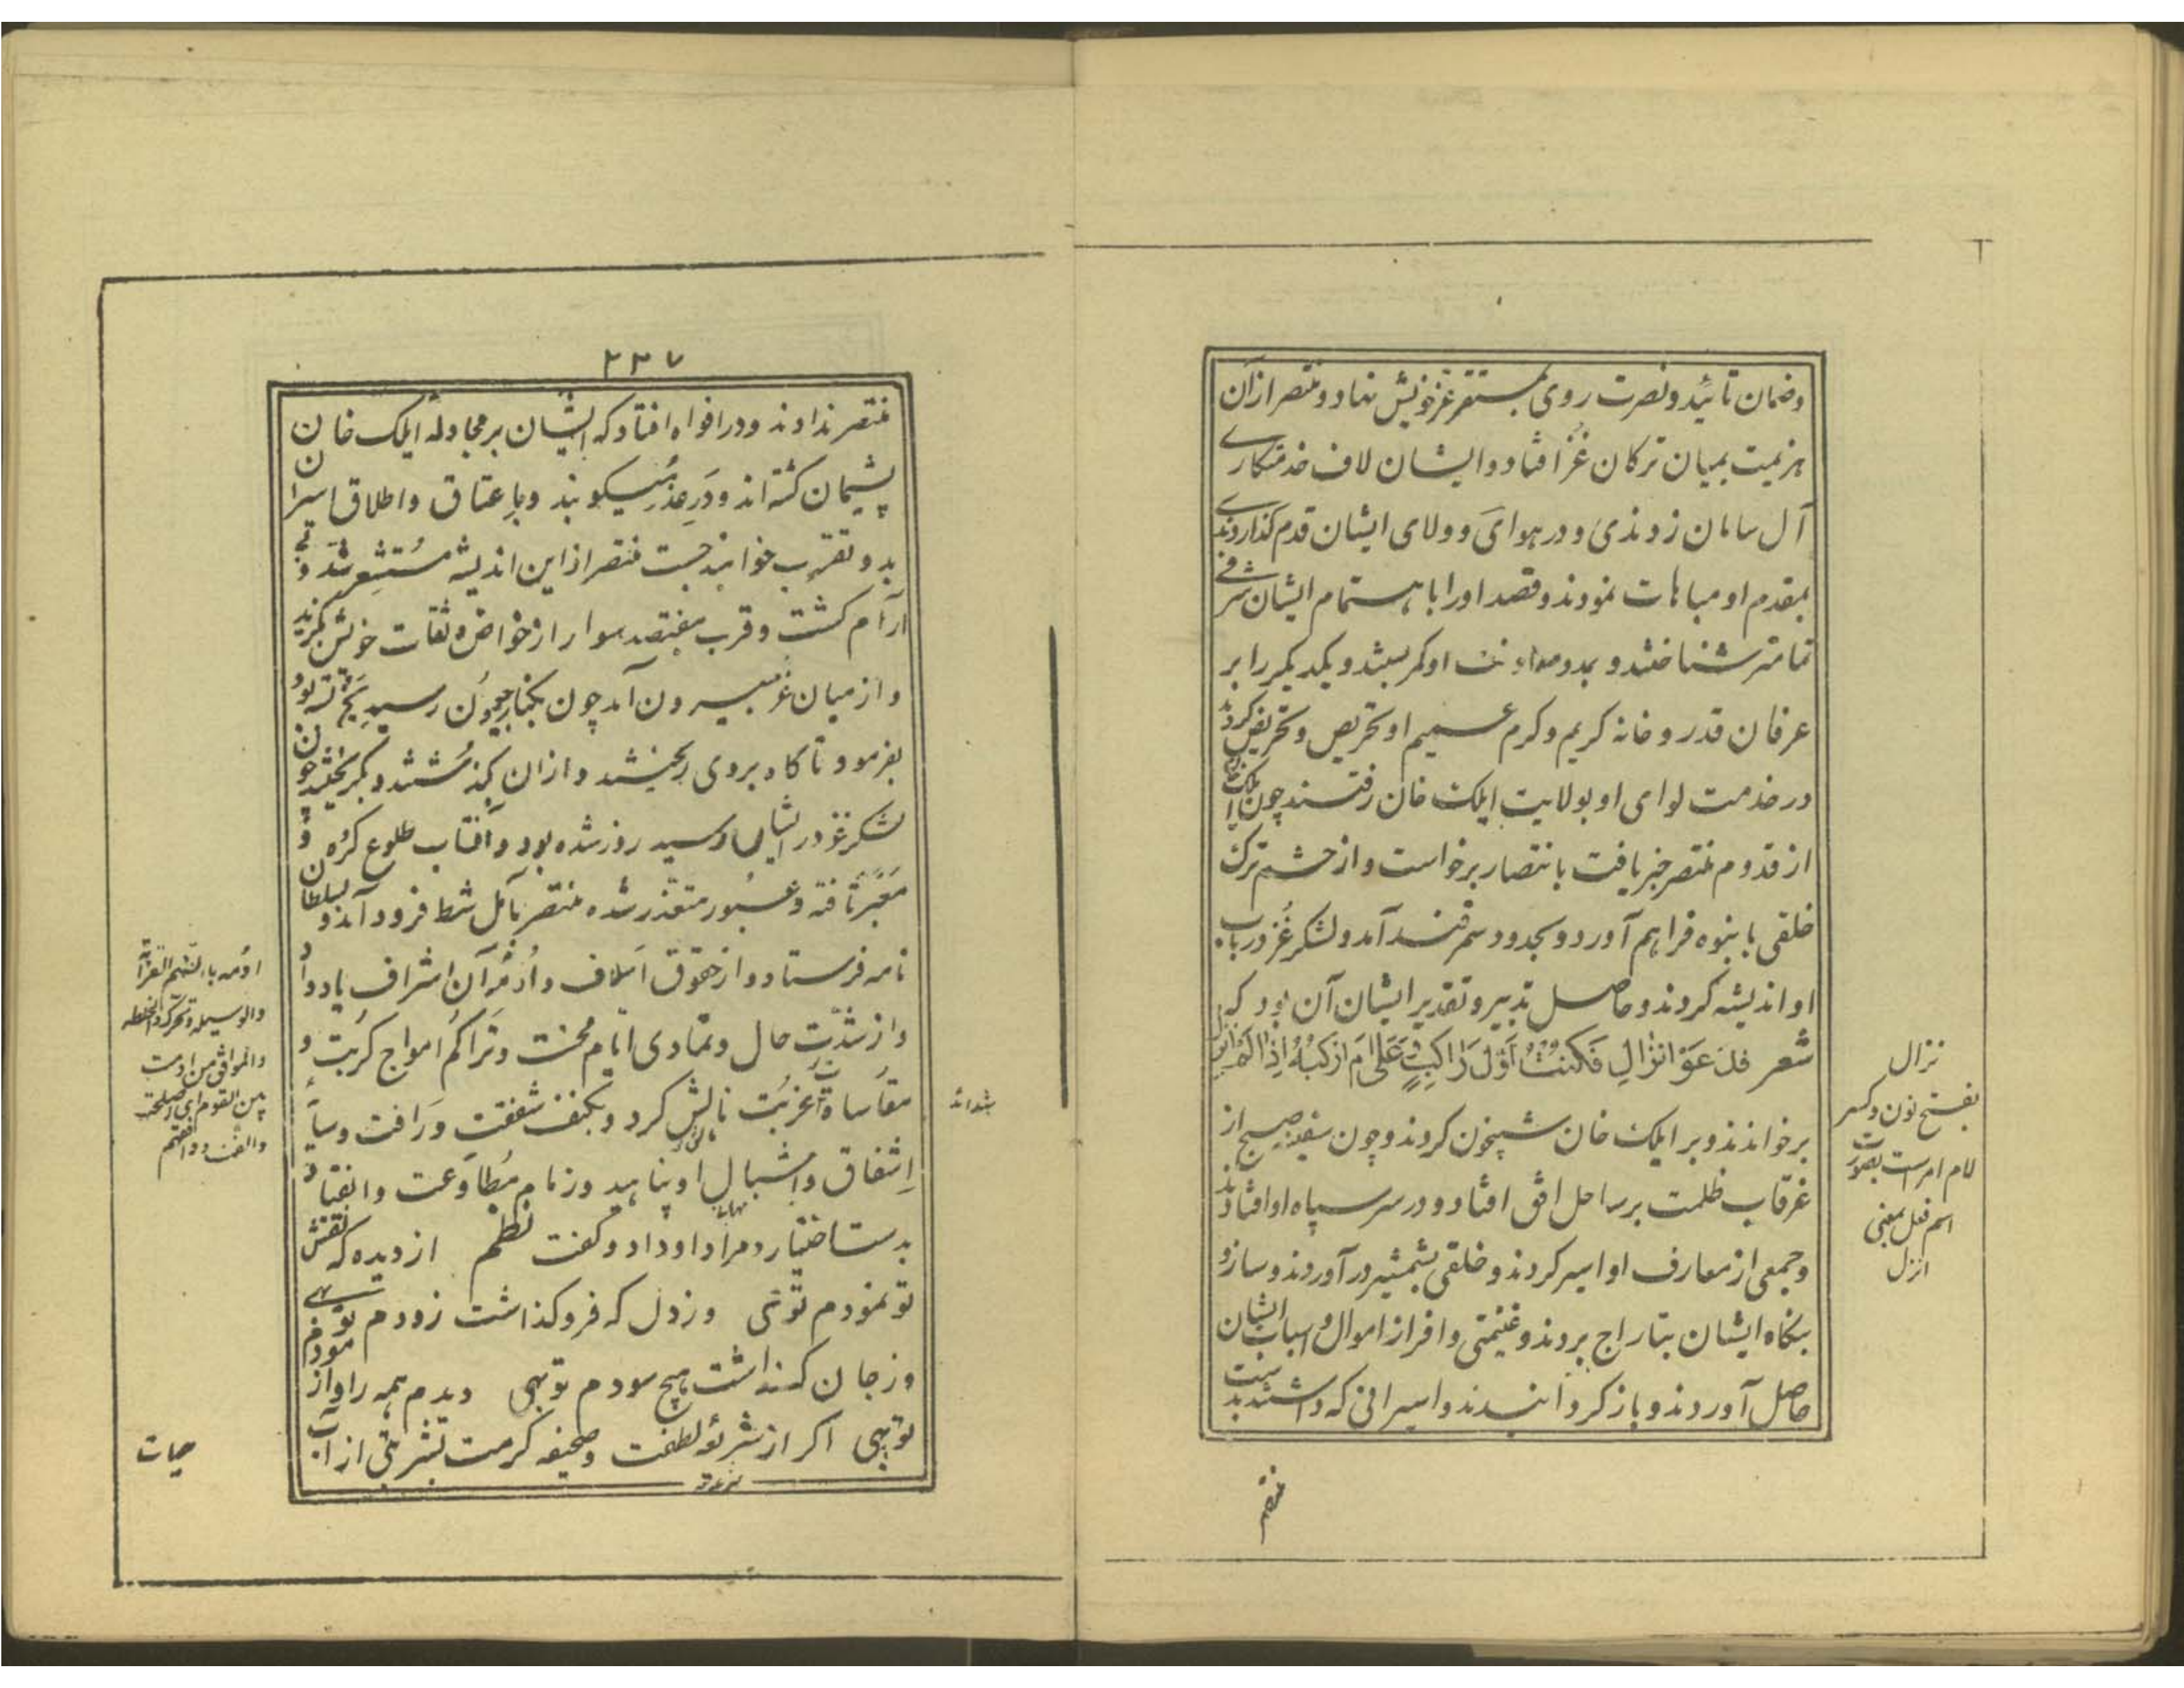 وضمان تائید ونصرت روی بمستقر عز خویش نهاد و منتصر ازان
هزیمت بمیان ترکان غُز افتاد و ایشان لاف خدمتکاری
آل سامان زدندی و در هوای و ولای ایشان قدم گذاردندی
بمقدم او مباهات نمودند و قصد او را باهتمام ایشان شرفی
تمامتر شناختند و بمدد و معاونت او کمر بستند و یکدیگر را بر
عرفان قدر و خانه کریم و کرم عمیم او تحریص و تحریض کردند
در خدمت لوای او بولایت ایلک خان رفتند چون ایلک خان
از قدوم منتصر خبر یافت بانتصار برخواست و از حشم ترک
خلقی بانبوه فراهم آورد و بحدود سمرقند آمد و لشکر غُز در باب
او اندیشه کردند و حاصل تدبیر و تقدیر ایشان آن بود که
شعر فَدَعَوْا نَزالِ فَکُنْتُ اَوَّلَ رَاکِبٍ وَعَلَامَ اَرْکَبُهُ اِذَا لَمْ اَنْزِلِ
برخواندند و بر ایلک خان شبیخون کردند و چون سفینه صبح از
غرقاب ظلمت بر ساحل افق افتاد و در سر سپاه او افتادند
و جمعی از معارف او اسیر کردند و خلقی بشمشیر در آوردند و ساز و
بنگاه ایشان بتاراج بردند و غنیمتی وافر از اموال و اسباب ایشان
حاصل آوردند و باز گردانیدند و اسیرانی که داشتند بدست
منتصر
نزال
بفتح نون و کسر
لام امر است بصورت
اسم فعل بمعنی
انزل
۲۳۷
منتصر ندادند و در افواه افتاد که ایشان بر مجادله ایلک خان
پشیمان گشته اند و دَرِ عذر میکوبند و باِعتاق و اطلاق اسیران
بدو تقرب خواهند جست منتصر از این اندیشه مُستشعِر شد و بی
آرام گشت و قرب هفتصد سوار از خواص و ثقات خویش بگزید
و از میان غز بیرون آمد چون بکنار جیحون رسید یخ بسته بود
بفرمود تا کاه بروی ریختند و ازان بگذشتند و بگریختند چون
لشکر غز در ایشان رسید روز شده بود و آفتاب طلوع کرده و
مَعْبَر تافته و عبور متعذر شده منتصر بآمل شط فرود آمد و بسلطان
نامه فرستاد و از حقوق اَسلاف و اُدمهٔ آن اشراف یاد داد
و از شدّت حال و تمادی ایّام محنت و تَراکُم امواج کربت و
مقاسات غربت نالش کرد و بکنف شفقت و رَافت و سایهٔ
اِشفاق و اشبال او پناهید و زمام مُطاوَعت و انقیاد
بدست اختیار و مراد او داد و گفت نظم از دیده که نقش
تو نمودم توبهی وز دل که فرو گذاشت زودم توبهی
وز جان که نداشت هیچ سودم توبهی دیدم همه را و آزمودم
توبهی اگر از شرعهٔ لطفت و صحیفه کرمت بشربتی از آب
حیات
ادمه بالضم القرابة
والوسیله و تحرک والخلطه
والموافق من ادمت
بین القوم ای اصلحت
والفت و وافقتهم
شدائد